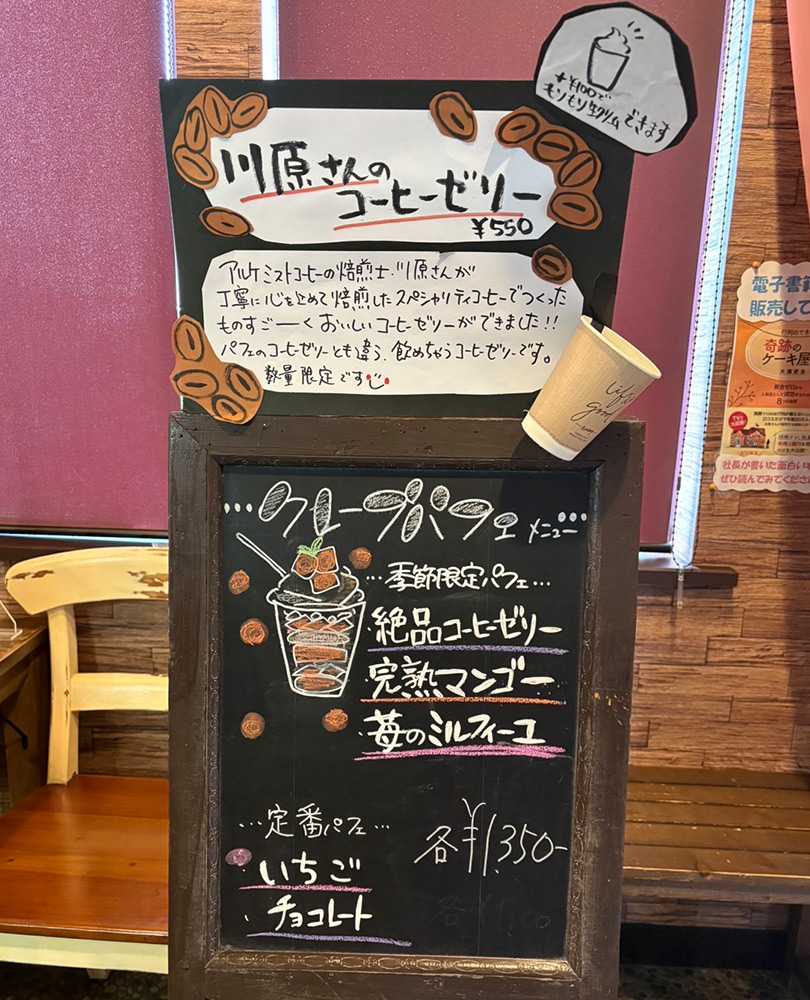 +¥100で
もりもり生クリームできます
川原さんの
コーヒーゼリー
¥550
アルケミストコーヒーの焙煎士・川原さんが
丁寧に心を込めて焙煎したスペシャリティコーヒーでつくった
ものすごーーくおいしいコーヒーゼリーができました!!
パフェのコーヒーゼリーとも違う、飲めちゃうコーヒーゼリーです。
数量限定です
Life
good
クレープパフェメニュー
…季節限定パフェ…
絶品コーヒーゼリー
完熟マンゴー
苺のミルフィーユ
…定番パフェ…
各¥1,350-
いちご
チョコレート
電子書籍
販売して
奇跡の
ケーキ屋
社長が書いた面白い
ぜひ読んでみてくださ